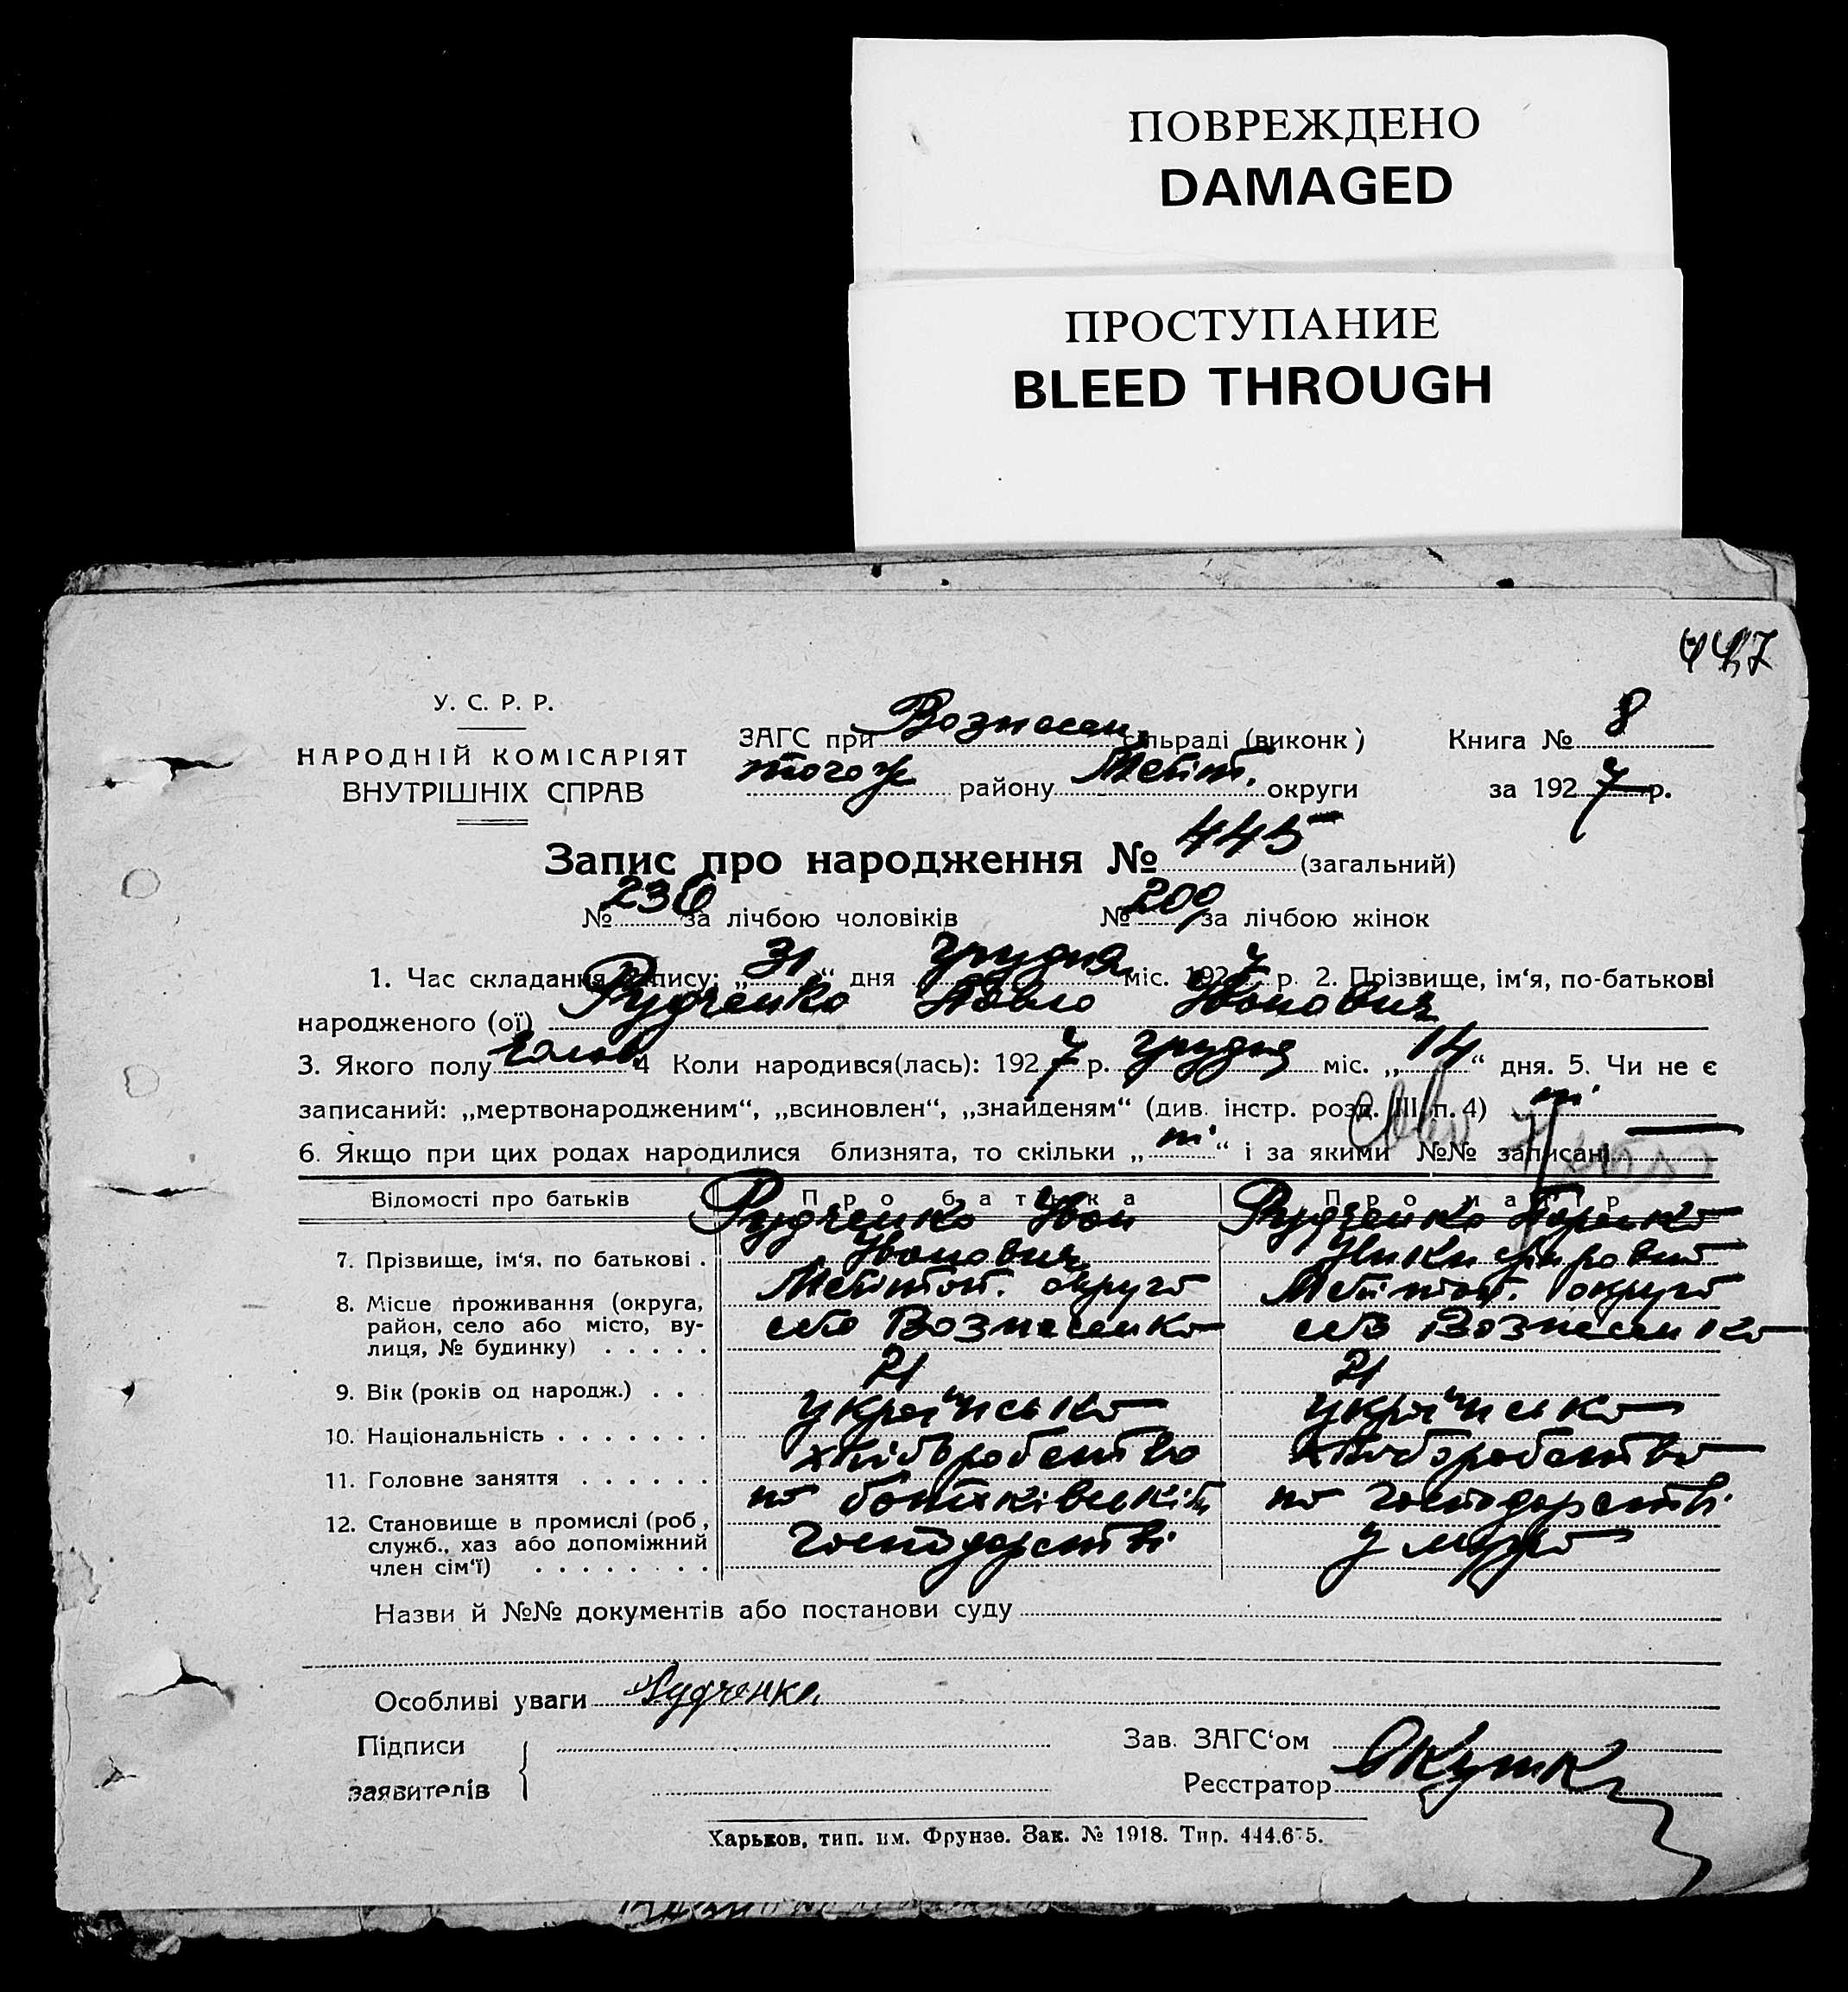 ПОВРЕЖДЕНО
DAMAGED
ПРОСТУПАНИЕ
BLEED THROUGH
447
У. С. Р. Р.
НАРОДНІЙ КОМІСАРІЯТ
ВНУТРІШНІХ СПРАВ
ЗАГС при Вознесен сільраді (виконк)
тогож району Меліт. округи
Книга № 8
за 1927 р.
Запис про народження № 445 (загальний)
№ 236 за лічбою чоловіків № 209 за лічбою жінок
1. Час складання запису: „31“ дня грудня міс. 1927 р. 2. Прізвище, ім‘я, по-батькові
народженого (ої) Рудченко Павло Іванович
3. Якого полу чолов. 4 Коли народився(лась): 1927 р. грудня міс. „14“ дня. 5. Чи не є
записаний: „мертвонародженим“, „всиновлен“, „знайденям“ (див. інстр. розд. III, п. 4) ні
6. Якщо при цих родах народилися близнята, то скільки „ні“ і за якими №№ записані
Відомості про батьків Про батька Про матір
7. Прізвище, ім‘я, по батькові . Рудченко Іван Іванович Рудченко
8. Місце проживання (округа, район, село або місто, вулиця, № будинку) . . . . . Мелітоп. округа село Вознесенка Мелітоп. округа село Вознесенка
9. Вік (років од народж.) . . . 21 21
10. Національність . . . . . . . українська українська
11. Головне заняття . . . . . . хліборобство хліборобство
12. Становище в промислі (роб, служб., хаз або допоміжний член сім‘ї) . . . . . . . . на батьківській господарстві на господарстві у мужа
Назви й №№ документів або постанови суду
Особливі уваги Рудченко
Підписи
заявителів
Зав. ЗАГС‘ом
Реєстратор
Харьков, тип. им. Фрунзе. Зак. № 1918. Тир. 444.675.